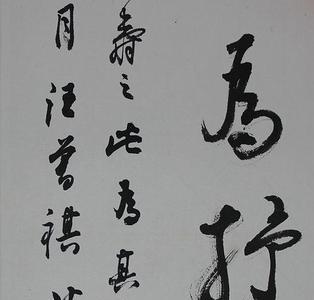 為抒
壽之此為其
月汪曾祺